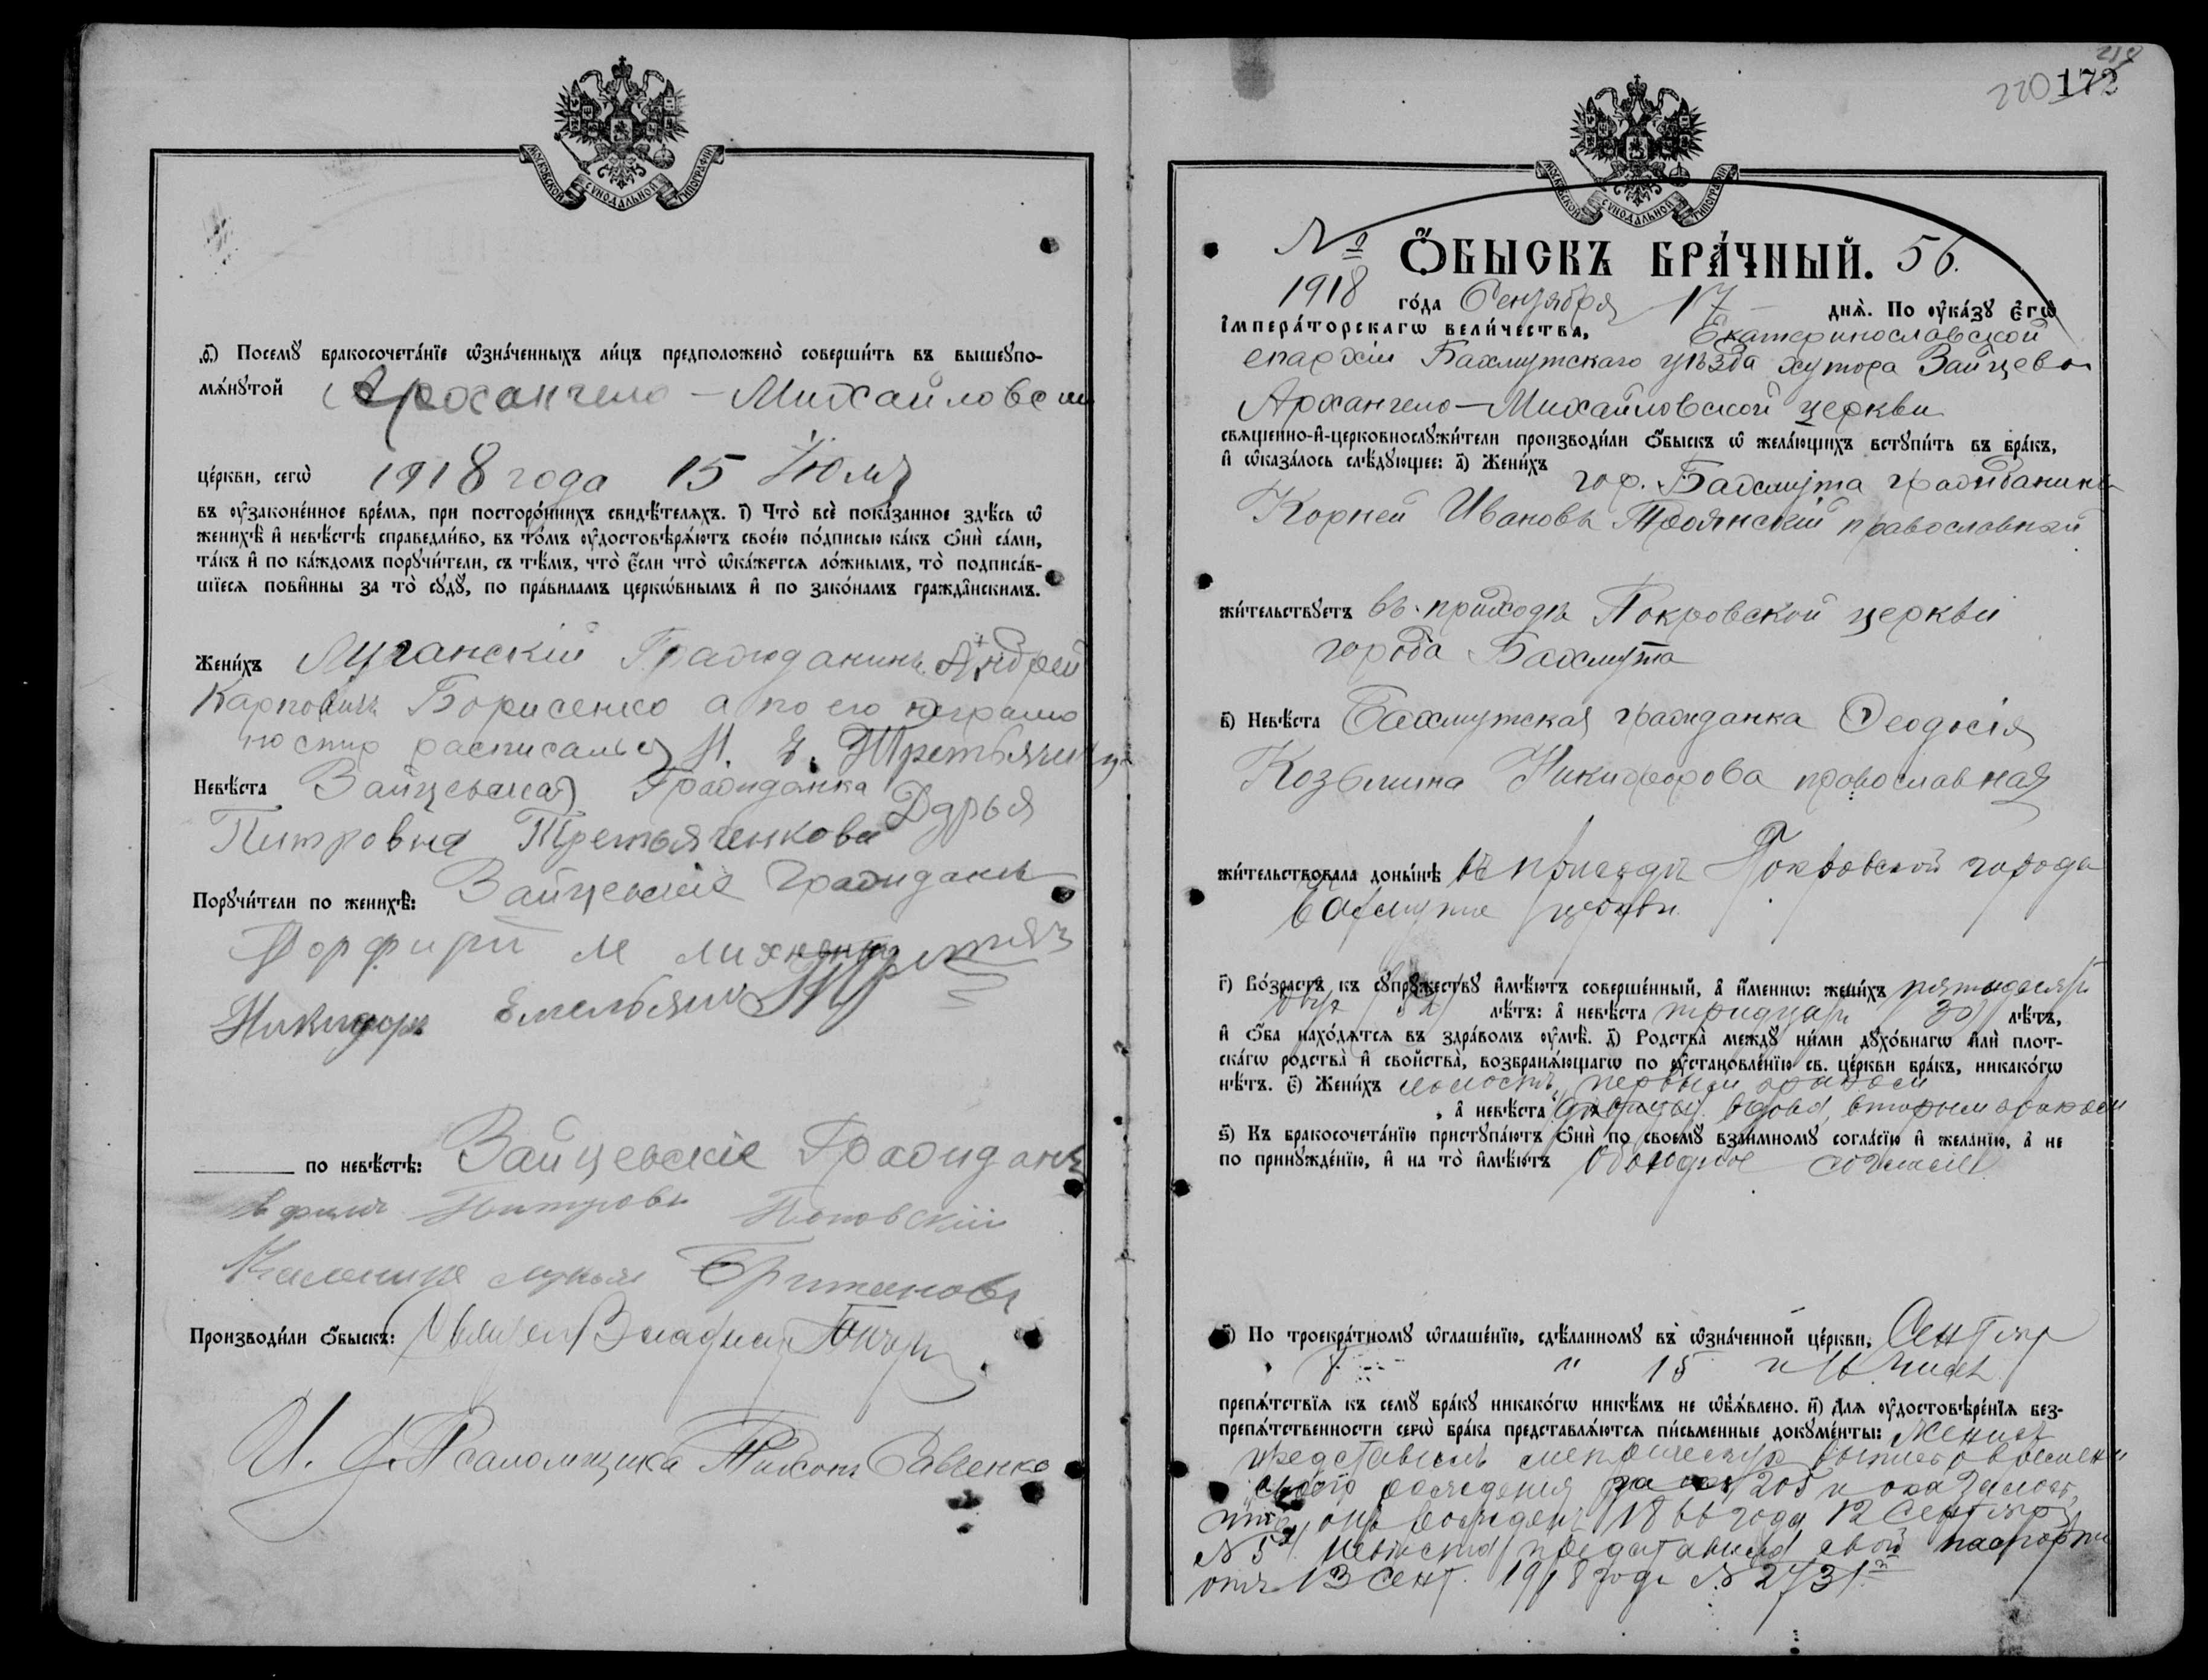 МОСКОВСКОЙ СѴНОДАЛЬНОЙ ТИПОГРАФІИ
Посемꙋ бракосочета́нїе ѡ҆зна́ченныхъ ли́цъ предположено̀ соверши́ть въ вышеупо-
мѧ́нꙋтой Архангело-Михайловской
це́ркви, сегѡ̀ 1918 года 15 Июля
въ ᲂу҆законе́нное вре́мѧ, при посторо́ннихъ свидѣ́телѧхъ. і҃) Что̀ всѐ пока́занное здѣ́сь ѡ҆
женихѣ̀ и҆ невѣ́стѣ справедли́во, въ то́мъ ᲂу҆достовѣрѧ́ютъ свое́ю по́дписью ка́къ ѻ҆нѝ са́ми,
та́къ и҆ по ка́ждомъ порꙋчи́тели, съ тѣ́мъ, что̀ є҆́сли что̀ ѡ҆ка́жетсѧ ло́жнымъ, то̀ подписа́в-
шїесѧ пови́нны за то̀ сꙋдꙋ̀, по пра́виламъ церкѡ́внымъ и҆ по зако́намъ гражда́нскимъ.
Жени́хъ Луганскій Гражданинъ Андрей
Карповичъ Борисенко а по его неграмо
ностир расписался
Невѣ́ста Зайцевская Гражданка Дарья
Питровна Третьяченкова
Порꙋчи́тели по женихѣ̀: Зайцевскіе Граждане
Порфирій М
Никифоръ Емельянов
по невѣ́стѣ: Зайцевскіе Граждане
Питровъ Поповскій
Британовъ
Производи́ли ѻ҆́быскъ:
И. д. Псаломщика Тихонъ Савченко
218
220 172
МОСКОВСКОЙ СѴНОДАЛЬНОЙ ТИПОГРАФІИ
№ Ѻ҆́БЫСКЪ БРА́ЧНЫЙ. 56.
1918 го́да Сентября 17 днѧ̀. По ᲂу҆ка́зꙋ Є҆гѡ̀
І҆мпера́торскагѡ вели́чества, Екатеринославской
епархіи Бахмутскаго уѣзда хутора Зайцева
Архангело-Михайловской церкви
свѧще́нно-и҆-церковнослꙋжи́тели производи́ли ѻ҆́быскъ ѡ҆ жела́ющихъ встꙋпи́ть въ бра́къ,
и҆ ѡ҆каза́лось слѣ́дꙋющее: а҃) Жени́хъ гор. Бахмута гражданинъ
Корней Ивановъ Троянскій православный
жи́тельствꙋетъ въ приходѣ Покровской церкви
города Бахмута
в҃) Невѣ́ста Бахмутская гражданка Ѳеодосія
Козьмина Никифорова православная
жи́тельствовала доны́нѣ въ приходѣ Покровской города
Бахмута церкви
г҃) Во́зрастъ къ сꙋпрꙋ́жествꙋ и҆мѣ́ютъ соверше́нный, а҆ и҆́меннѡ: жени́хъ пятидесяти
двухъ (52) лѣ́тъ: а҆ невѣ́ста тридцати (30) лѣ́тъ,
и҆ ѻ҆́ба нахо́дѧтсѧ въ здра́вомъ ᲂу҆мѣ̀. д҃) Родства̀ междꙋ̀ ни́ми дꙋхо́внагѡ и҆лѝ плот-
ска́гѡ родства̀ и҆ сво́йства̀, возбранѧ́ющагѡ по ᲂу҆становле́нїю св. це́ркви бра́къ, никако́гѡ
нѣ́тъ. є҃) Жени́хъ холостъ, первымъ бракомъ
, а҆ невѣ́ста вдова, вторымъ бракомъ
ѕ҃) Къ бракосочета́нїю пристꙋпа́ютъ ѻ҆нѝ по своемꙋ̀ взаи́мномꙋ согла́сїю и҆ жела́нїю, а҆ не
по принꙋжде́нїю, и҆ на то̀ и҆мѣ́ютъ обоюдное согласіе
з҃) По троекра́тномꙋ ѡ҆глаше́нїю, сдѣ́ланномꙋ въ ѡ҆зна́ченной це́ркви, Сентября
8 " 15 и 16 чиселъ
препѧ́тствїѧ къ семꙋ̀ бра́кꙋ никако́гѡ никѣ́мъ не ѡ҆б̾ѧ́влено. и҃) Длѧ ᲂу҆достовѣре́нїѧ без-
препѧ́тственности сегѡ̀ бра́ка представлѧ́ютсѧ пи́сьменные докꙋме́нты: Женихъ
представилъ метрическую выпись о времени
своего рожденія за № 205 и оказалось,
что онъ рожденъ 1866 года 12 Сентября
№ 5 Невѣста представила свой паспортъ
отъ 13 Сент. 1918 года № 2731